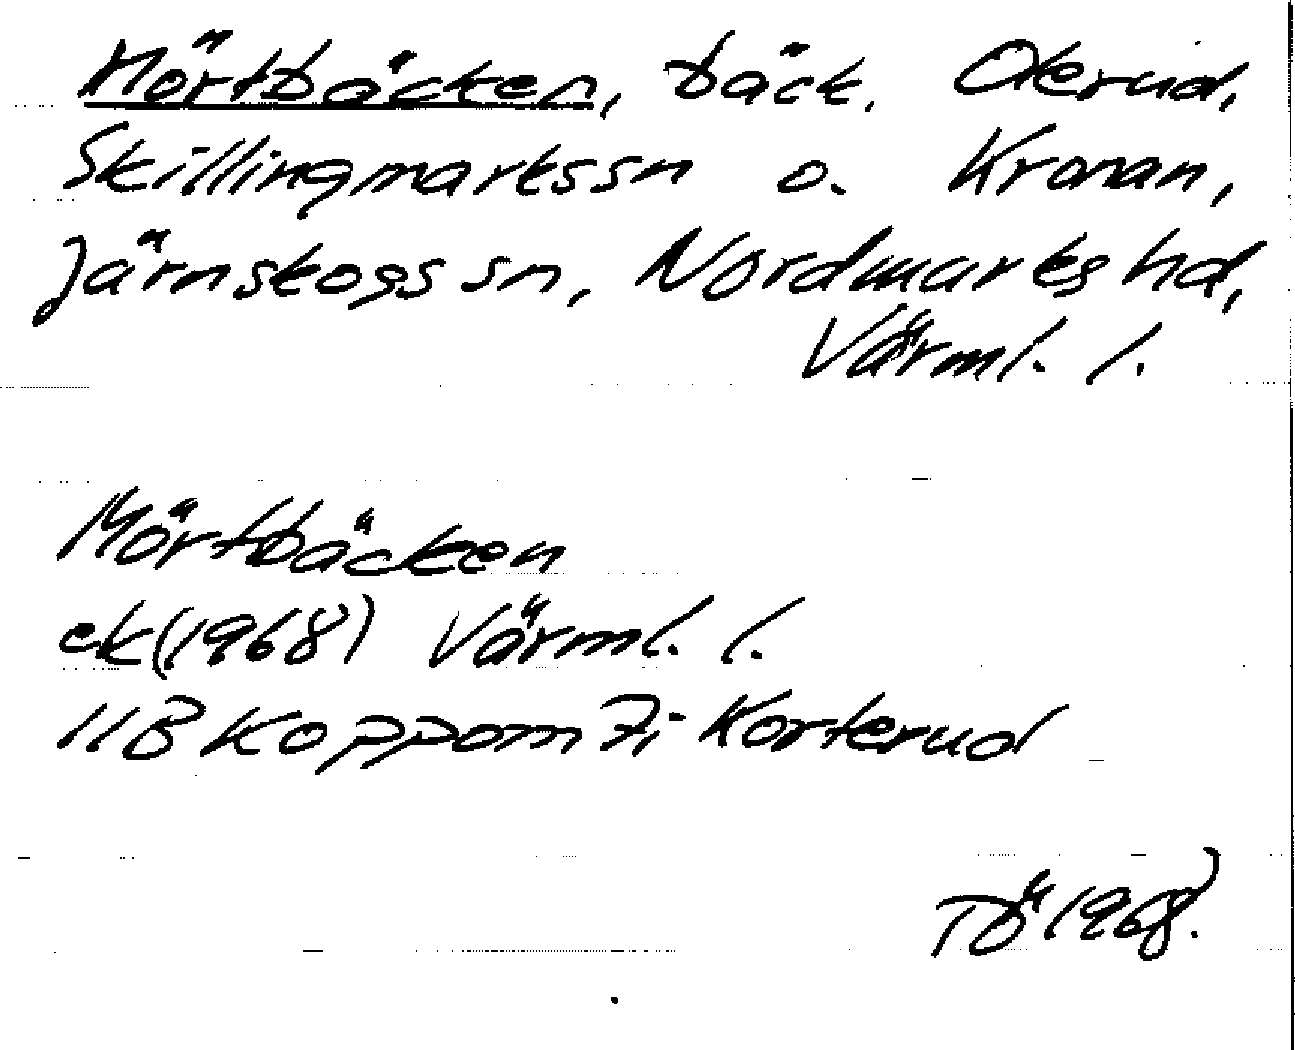 Mörtbäcken, bäck. Okerud,
Skillingmarkssn o. Kronan,
Järnskogs sn, Nordmarks hd,
Värml. l.
Mörtbäcken
ek(1968) Värml. l.
11B Koppom 7i Korterud
1968